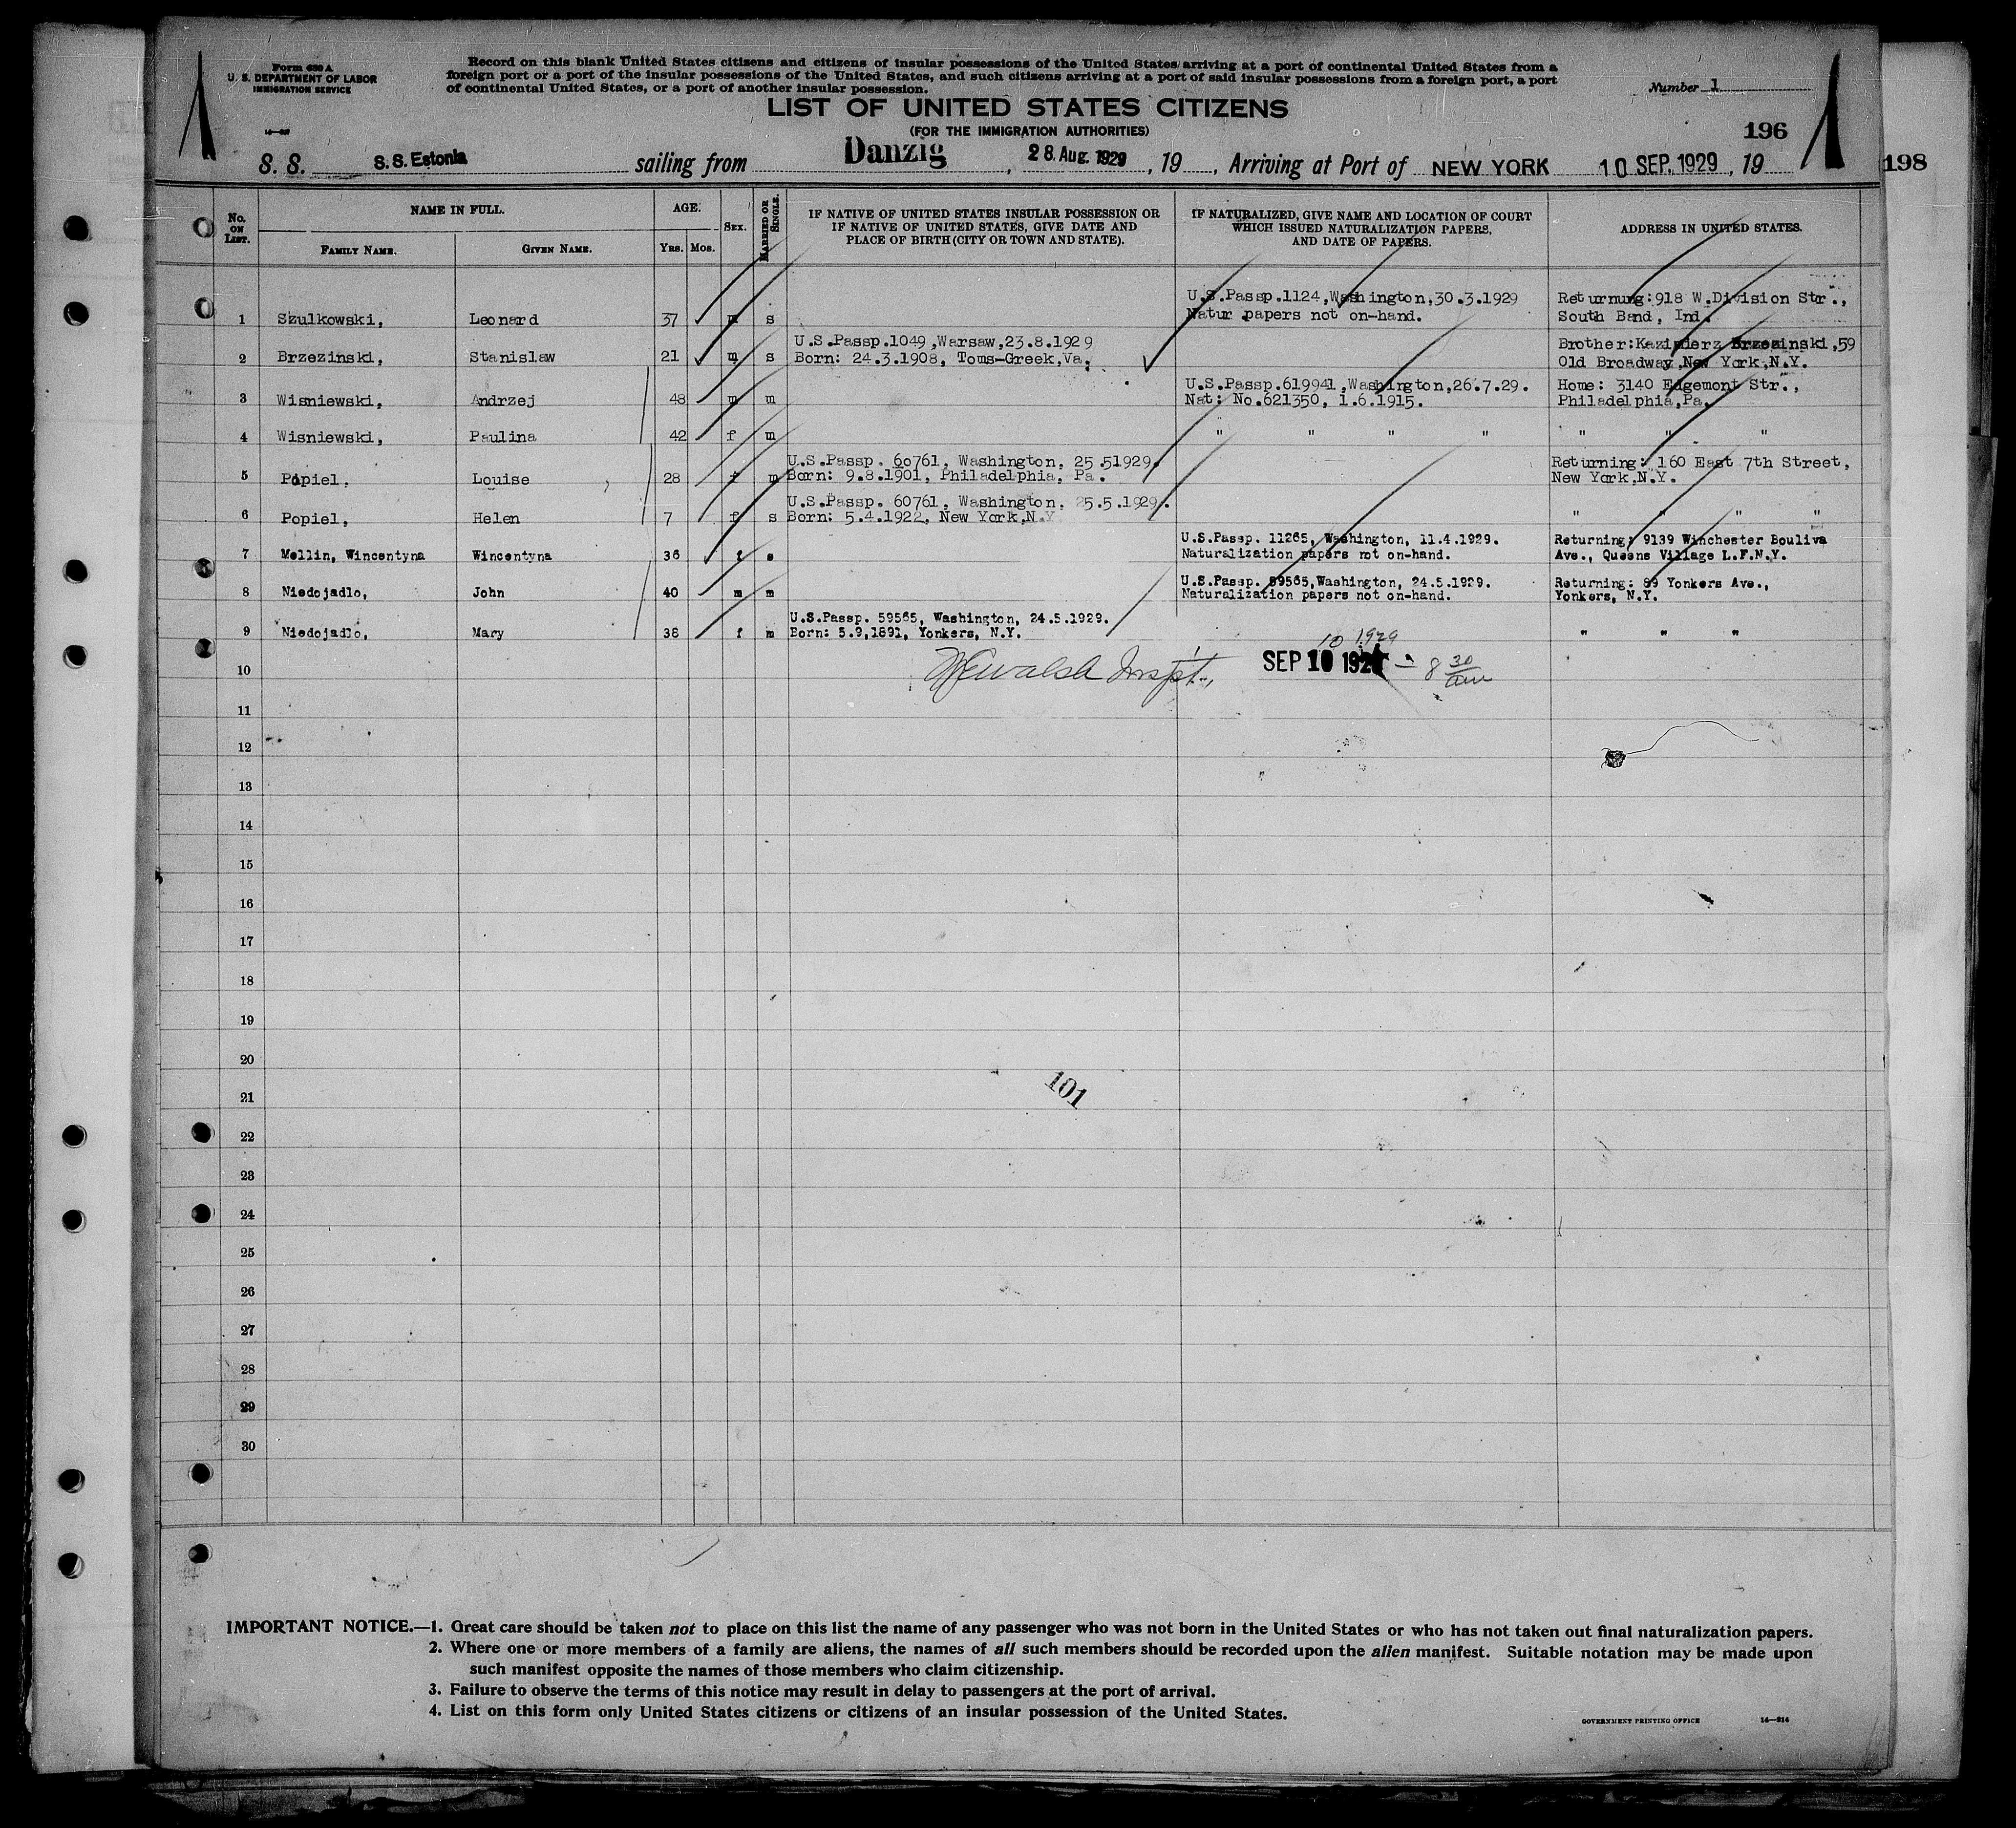 Form 630 A
U. S. DEPARTMENT OF LABOR
IMMIGRATION SERVICE
Record on this blank United States citizens and citizens of insular possessions of the United States arriving at a port of continental United States from a
foreign port or a port of the insular possessions of the United States, and such citizens arriving at a port of said insular possessions from a foreign port, a port
of continental United States, or a port of another insular possession.
Number 1
LIST OF UNITED STATES CITIZENS
(FOR THE IMMIGRATION AUTHORITIES)
196
198
S. S. S. S. Estonia sailing from Danzig, 28. Aug. 1929, 19, Arriving at Port of NEW YORK 10 SEP. 1929, 19
No. ON LIST.
NAME IN FULL.
FAMILY NAME.
GIVEN NAME.
AGE.
YRS. MOS.
SEX.
MARRIED OR SINGLE.
IF NATIVE OF UNITED STATES INSULAR POSSESSION OR
IF NATIVE OF UNITED STATES, GIVE DATE AND
PLACE OF BIRTH (CITY OR TOWN AND STATE).
IF NATURALIZED, GIVE NAME AND LOCATION OF COURT
WHICH ISSUED NATURALIZATION PAPERS,
AND DATE OF PAPERS.
ADDRESS IN UNITED STATES.
U.S.Passp.1124,Washington,30.3.1929 Returnung:918 W.Division Str.,
1 Szulkowski, Leonard 37 m s Natur papers not on-hand. South Band, Ind.
U.S.Passp.1049,Warsaw,23.8.1929 Brother:Kazimierz Brzezinski,59
2 Brzezinski, Stanislaw 21 m s Born: 24.3.1908, Toms-Greek,Va. Old Broadway,New York,N.Y.
U.S.Passp.619941,Washington,26.7.29. Home: 3140 Edgemont Str.,
3 Wisniewski, Andrzej 48 m m Nat: No.621350, 1.6.1915. Philadelphia,Pa.
4 Wisniewski, Paulina 42 f m " " " " " " "
U.S.Passp. 60761, Washington, 25.51929. Returning: 160 East 7th Street,
5 Popiel, Louise 28 f m Born: 9.8.1901, Philadelphia, Pa. New York,N.Y.
U.S.Passp. 60761, Washington, 25.5.1929.
6 Popiel, Helen 7 f s Born: 5.4.1922, New York,N.Y " " " "
U.S.Passp. 11265, Washington, 11.4.1929. Returning: 9139 Winchester Bouliva
7 Mellin, Wincentyna Wincentyna 36 f s Naturalization papers not on-hand. Ave., Queens Village L.F.N.Y.
U.S.Passp. 59565,Washington, 24.5.1929. Returning: 89 Yonkers Ave.,
8 Niedojadlo, John 40 m m Naturalization papers not on-hand. Yonkers, N.Y.
U.S.Passp. 59565, Washington, 24.5.1929.
9 Niedojadlo, Mary 38 f m Born: 5.9,1891, Yonkers, N.Y. " " "
10 1929
10 Inspt., SEP 10 192 — 8 30 am
11
12
13
14
15
16
17
18
19
20
101
21
22
23
24
25
26
27
28
29
30
IMPORTANT NOTICE.—1. Great care should be taken not to place on this list the name of any passenger who was not born in the United States or who has not taken out final naturalization papers.
2. Where one or more members of a family are aliens, the names of all such members should be recorded upon the alien manifest. Suitable notation may be made upon
such manifest opposite the names of those members who claim citizenship.
3. Failure to observe the terms of this notice may result in delay to passengers at the port of arrival.
4. List on this form only United States citizens or citizens of an insular possession of the United States.
GOVERNMENT PRINTING OFFICE 14—214